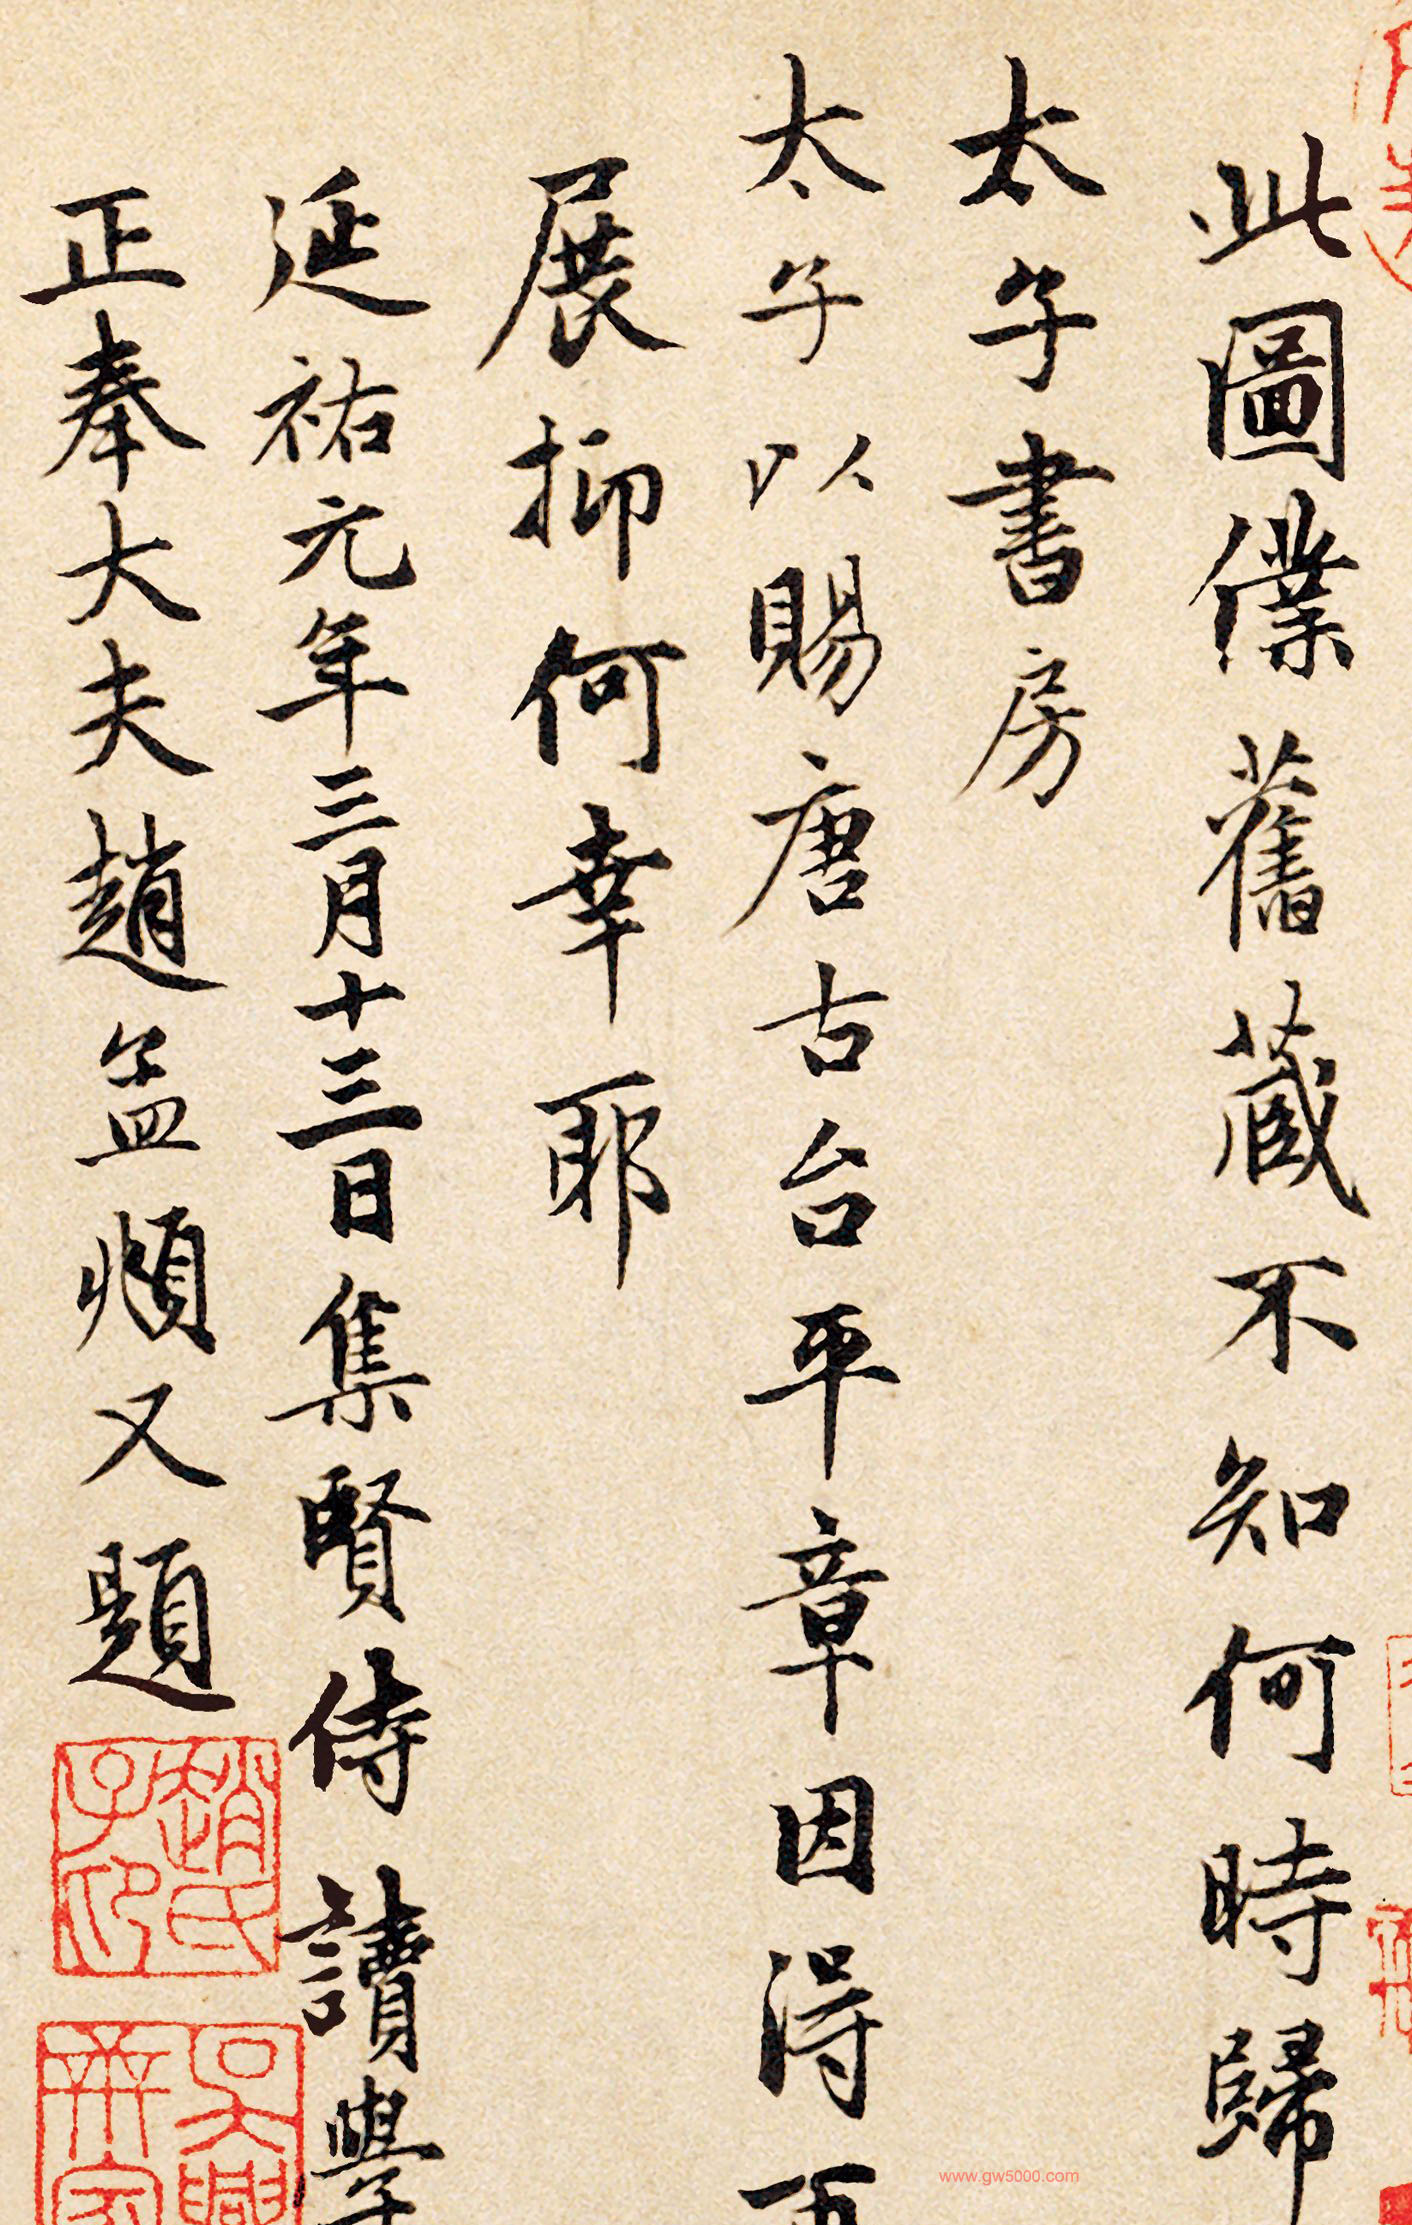 此圖僕舊藏不知何時歸
太子書房
太子以賜唐古台平章因得再
展抑何幸耶
延祐元年三月十三日集賢侍讀學
正奉大夫趙孟頫又題
趙氏子印
www.gw5000.com